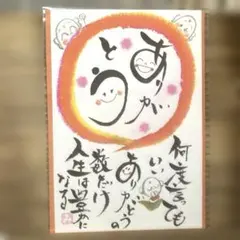 ありがとう
何度言っても
いい
ありがとうの
数だけ
人生は豊かに
なる